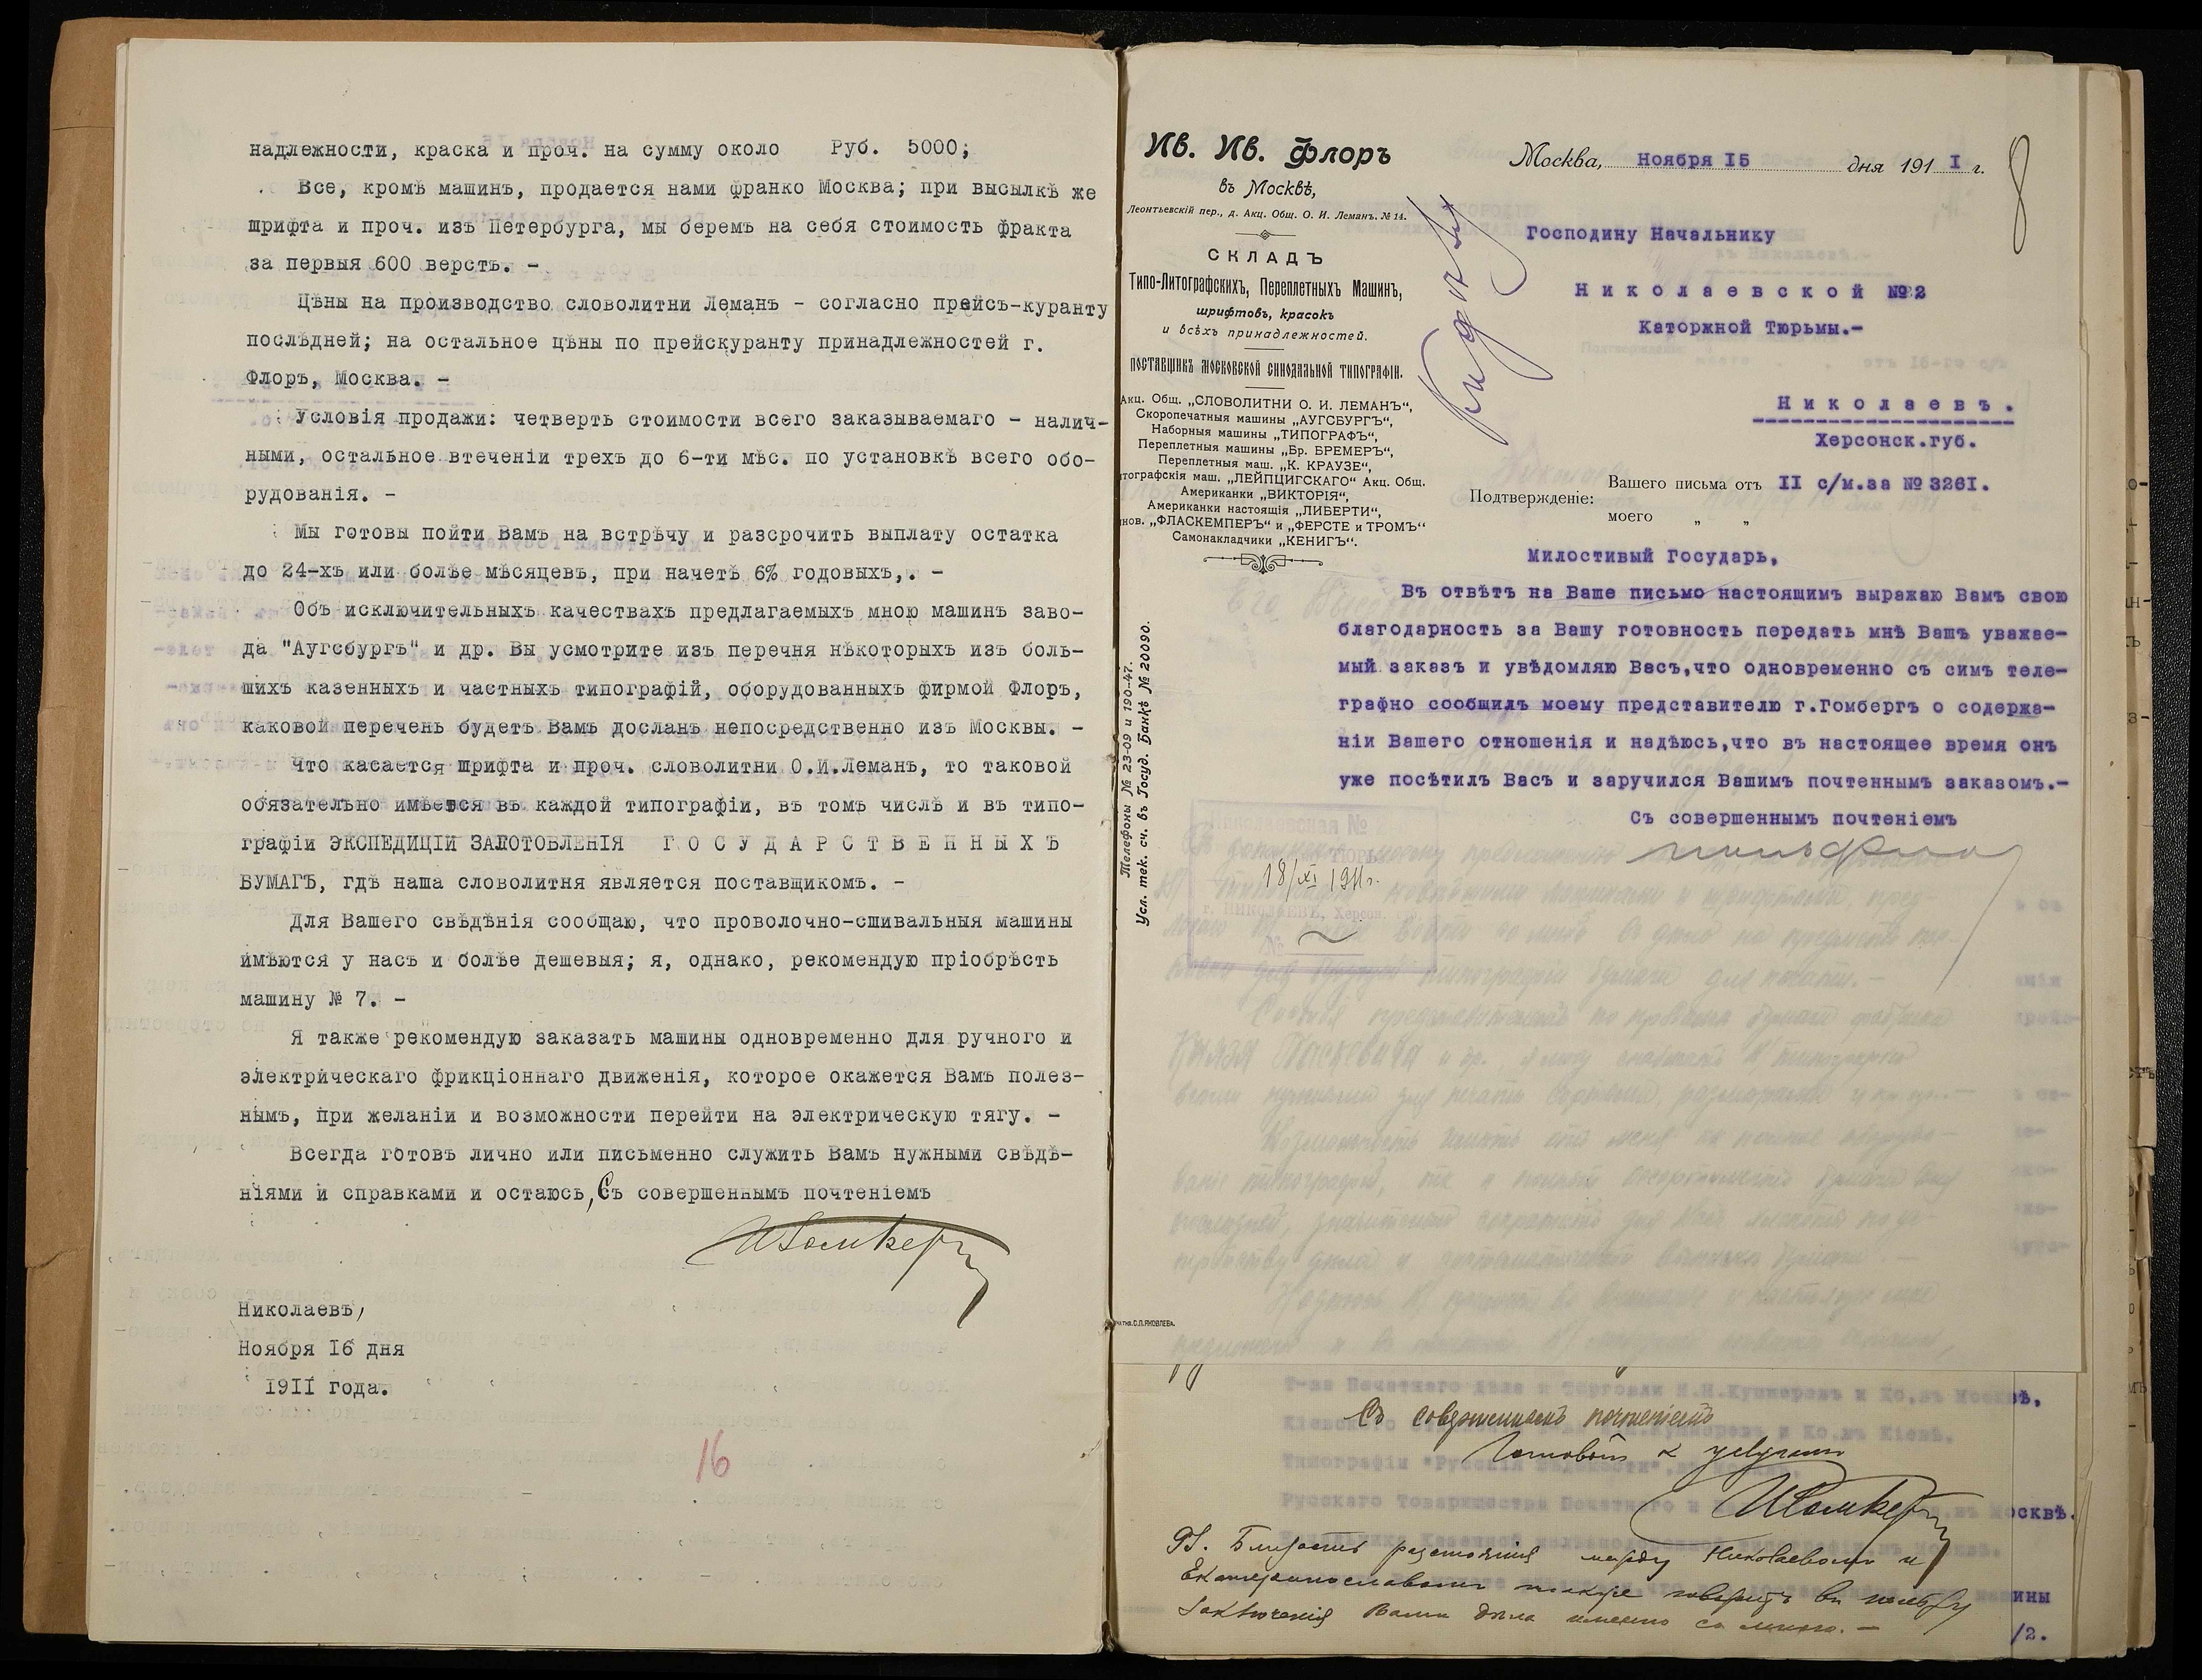 надлежности, краска и проч. на сумму около Руб. 5000;
Все, кромѣ машинъ, продается нами франко Москва; при высылкѣ же
шрифта и проч. изъ Петербурга, мы беремъ на себя стоимость фракта
за первыя 600 верстъ. -
Цѣны на производство словолитни Леманъ - согласно прейсъ-куранту
послѣдней; на остальное цѣны по прейскуранту принадлежностей г.
Флоръ, Москва. -
Условія продажи: четверть стоимости всего заказываемаго - налич-
ными, остальное втеченіи трехъ до 6-ти мѣс. по установкѣ всего обо-
рудованія. -
Мы готовы пойти Вамъ на встрѣчу и разсрочить выплату остатка
до 24-хъ или болѣе мѣсяцевъ, при начетѣ 6% годовыхъ,. -
Объ исключительныхъ качествахъ предлагаемыхъ мною машинъ заво-
да "Аугсбургъ" и др. Вы усмотрите изъ перечня нѣкоторыхъ изъ боль-
шихъ казенныхъ и частныхъ типографій, оборудованныхъ фирмой Флоръ,
каковой перечень будетъ Вамъ досланъ непосредственно изъ Москвы. -
Что касается шрифта и проч. словолитни О.И.Леманъ, то таковой
обязательно имѣется въ каждой типографіи, въ томъ числѣ и въ типо-
графіи ЭКСПЕДИЦІИ ЗАГОТОВЛЕНІЯ Г О С У Д А Р С Т В Е Н Н Ы Х Ъ
БУМАГЪ, гдѣ наша словолитня является поставщикомъ. -
Для Вашего свѣдѣнія сообщаю, что проволочно-сшивальныя машины
имѣются у насъ и болѣе дешевыя; я, однако, рекомендую пріобрѣсть
машину № 7. -
Я также рекомендую заказать машины одновременно для ручного и
электрическаго фрикціоннаго движенія, которое окажется Вамъ полез-
нымъ, при желаніи и возможности перейти на электрическую тягу. -
Всегда готовъ лично или письменно служить Вамъ нужными свѣдѣ-
ніями и справками и остаюсь, Съ совершеннымъ почтеніемъ
ИГомбергъ
Николаевъ,
Ноября 16 дня
1911 года.
16
Ив. Ив. Флоръ
въ Москвѣ,
Леонтьевскій пер., д. Акц. Общ. О. И. Леманъ. № 14.
СКЛАДЪ
Типо-Литографскихъ, Переплетныхъ Машинъ,
шрифтовъ, красокъ
и всѣхъ принадлежностей.
ПОСТАВЩИКЪ МОСКОВСКОЙ СИНОДАЛЬНОЙ ТИПОГРАФІИ.
Акц. Общ. „СЛОВОЛИТНИ О. И. ЛЕМАНЪ“,
Скоропечатныя машины „АУГСБУРГЪ“,
Наборныя машины „ТИПОГРАФЪ“,
Переплетныя машины „Бр. БРЕМЕРЪ“,
Переплетныя маш. „К. КРАУЗЕ“,
тографскія маш. „ЛЕЙПЦИГСКАГО“ Акц. Общ.
Американки „ВИКТОРІЯ“,
Американки настоящія „ЛИБЕРТИ“,
нов. „ФЛАСКЕМПЕРЪ“ и „ФЕРСТЕ и ТРОМЪ“
Самонакладчики „КЕНИГЪ“.
Телефоны № 23-09 и 190-47.
Усл. тек. сч. въ Госуд. Банкѣ № 20090.
Москва, Ноября 15 дня 1911 г.
8
Господину Начальнику
Н и к о л а е в с к о й № 2
Каторжной Тюрьмы.-
Н и к о л а е в ъ.
Херсонск.губ.
Подтвержденіе: Вашего письма отъ II с/м.за № 3261.
моего „ „
Милостивый Государь,
Въ отвѣтъ на Ваше письмо настоящимъ выражаю Вамъ свою
благодарность за Вашу готовность передать мнѣ Вашъ уважае-
мый заказъ и увѣдомляю Васъ,что одновременно съ симъ теле-
графно сообщилъ моему представителю г.Гомбергъ о содержа-
ніи Вашего отношенія и надѣюсь,что въ настоящее время онъ
уже посѣтилъ Васъ и заручился Вашимъ почтеннымъ заказомъ.-
Съ совершеннымъ почтеніемъ
18/XI 1911г.
г. НИКОЛАЕВЪ, Херсон.
№
Съ совершеннымъ почтеніемъ
Готовый къ услугамъ
ИГомбергъ
PS. Близость разстоянія между Николаевомъ и
Екатеринославомъ также говоритъ въ пользу
заключенія Вами дѣла именно со мною. -
Т-ва Печатнаго Дѣла и Торговли И.Н.Кушнеревъ и Ко,въ Москвѣ,
осквѣ.
ины
/2.